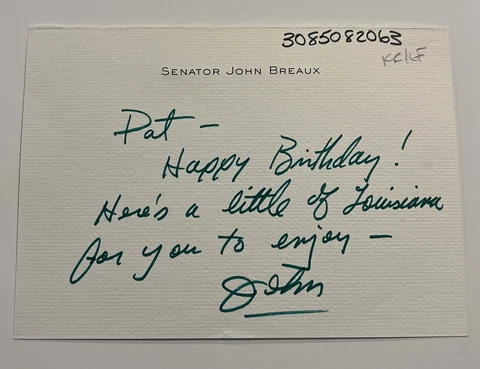 3085082063
KR/LF
SENATOR JOHN BREAUX
Pat —
Happy Birthday!
Here's a little of Louisiana
for you to enjoy —
John